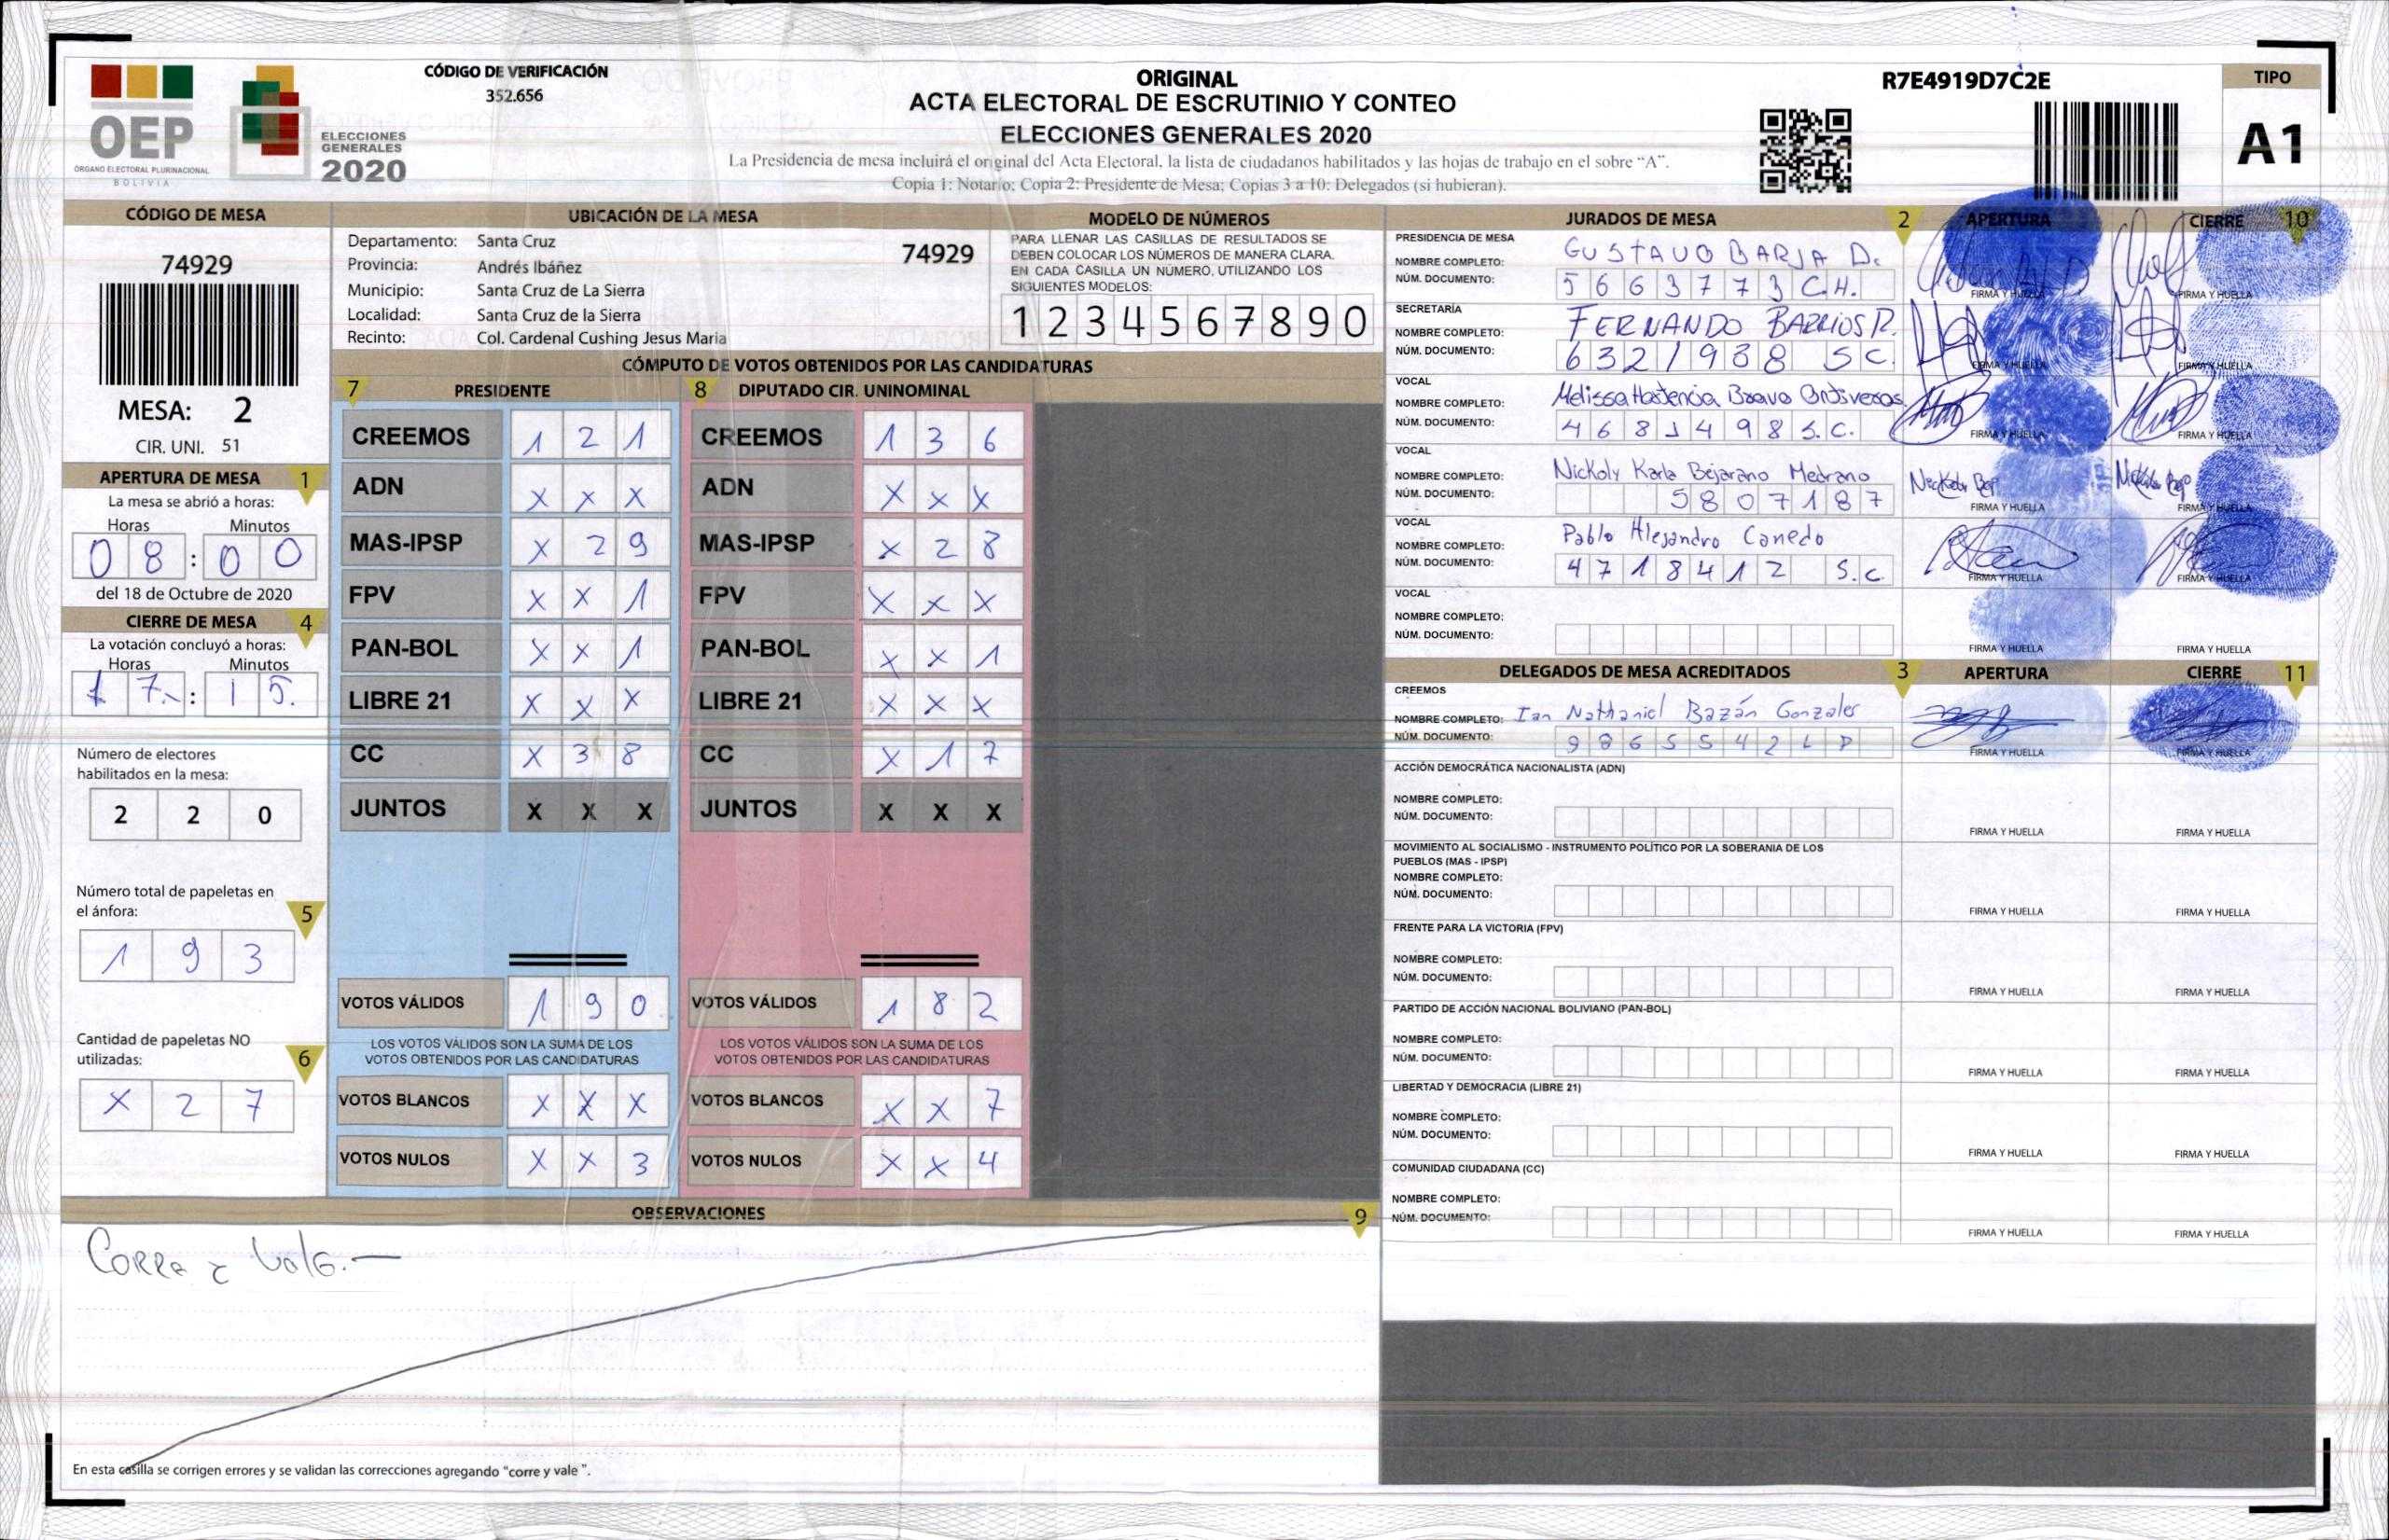 CÓDIGO DE VERIFICACIÓN
352.656
OEP
ÓRGANO ELECTORAL PLURINACIONAL
BOLIVIA
ELECCIONES
GENERALES
2020
ORIGINAL
ACTA ELECTORAL DE ESCRUTINIO Y CONTEO
ELECCIONES GENERALES 2020
La Presidencia de mesa incluirá el original del Acta Electoral, la lista de ciudadanos habilitados y las hojas de trabajo en el sobre "A".
Copia 1: Notario; Copia 2: Presidente de Mesa; Copias 3 a 10: Delegados (si hubieran).
R7E4919D7C2E
TIPO
A1
CÓDIGO DE MESA
74929
MESA: 2
CIR. UNI. 51
APERTURA DE MESA 1
La mesa se abrió a horas:
Horas Minutos
0 8 : 0 0
del 18 de Octubre de 2020
CIERRE DE MESA 4
La votación concluyó a horas:
Horas Minutos
1 7. : 1 5.
Número de electores
habilitados en la mesa:
2 2 0
Número total de papeletas en
el ánfora: 5
1 9 3
Cantidad de papeletas NO
utilizadas: 6
X 2 7
UBICACIÓN DE LA MESA
Departamento: Santa Cruz 74929
Provincia: Andrés Ibáñez
Municipio: Santa Cruz de La Sierra
Localidad: Santa Cruz de la Sierra
Recinto: Col. Cardenal Cushing Jesus Maria
MODELO DE NÚMEROS
PARA LLENAR LAS CASILLAS DE RESULTADOS SE
DEBEN COLOCAR LOS NÚMEROS DE MANERA CLARA.
EN CADA CASILLA UN NÚMERO, UTILIZANDO LOS
SIGUIENTES MODELOS:
1 2 3 4 5 6 7 8 9 0
CÓMPUTO DE VOTOS OBTENIDOS POR LAS CANDIDATURAS
7 PRESIDENTE
CREEMOS 1 2 1
ADN X X X
MAS-IPSP X 2 9
FPV X X 1
PAN-BOL X X 1
LIBRE 21 X X X
CC X 3 8
JUNTOS X X X
VOTOS VÁLIDOS 1 9 0
LOS VOTOS VÁLIDOS SON LA SUMA DE LOS
VOTOS OBTENIDOS POR LAS CANDIDATURAS
VOTOS BLANCOS X X X
VOTOS NULOS X X 3
8 DIPUTADO CIR. UNINOMINAL
CREEMOS 1 3 6
ADN X X X
MAS-IPSP X 2 8
FPV X X X
PAN-BOL X X 1
LIBRE 21 X X X
CC X 1 7
JUNTOS X X X
VOTOS VÁLIDOS 1 8 2
LOS VOTOS VÁLIDOS SON LA SUMA DE LOS
VOTOS OBTENIDOS POR LAS CANDIDATURAS
VOTOS BLANCOS X X 7
VOTOS NULOS X X 4
OBSERVACIONES 9
En esta casilla se corrigen errores y se validan las correcciones agregando "corre y vale ".
JURADOS DE MESA 2 APERTURA CIERRE 10
PRESIDENCIA DE MESA
NOMBRE COMPLETO: GUSTAVO BARJA D.
NÚM. DOCUMENTO: 5663773 C.H.
FIRMA Y HUELLA FIRMA Y HUELLA
SECRETARÍA
NOMBRE COMPLETO: FERNANDO BARRIOS R.
NÚM. DOCUMENTO: 6321938 SC.
FIRMA Y HUELLA FIRMA Y HUELLA
VOCAL
NOMBRE COMPLETO: Melissa Hortencia Bravo Ontiveros
NÚM. DOCUMENTO: 4681498 S.C.
FIRMA Y HUELLA FIRMA Y HUELLA
VOCAL
NOMBRE COMPLETO: Nickoly Karla Bejarano Medrano
NÚM. DOCUMENTO: 5807187
FIRMA Y HUELLA FIRMA Y HUELLA
VOCAL
NOMBRE COMPLETO: Pablo Alejandro Canedo
NÚM. DOCUMENTO: 4718412 S.C.
FIRMA Y HUELLA FIRMA Y HUELLA
VOCAL
NOMBRE COMPLETO:
NÚM. DOCUMENTO:
FIRMA Y HUELLA FIRMA Y HUELLA
DELEGADOS DE MESA ACREDITADOS 3 APERTURA CIERRE 11
CREEMOS
NOMBRE COMPLETO: Ian Nathaniel Bazán Gonzales
NÚM. DOCUMENTO:
FIRMA Y HUELLA FIRMA Y HUELLA
ACCIÓN DEMOCRÁTICA NACIONALISTA (ADN)
NOMBRE COMPLETO:
NÚM. DOCUMENTO:
FIRMA Y HUELLA FIRMA Y HUELLA
MOVIMIENTO AL SOCIALISMO - INSTRUMENTO POLÍTICO POR LA SOBERANIA DE LOS
PUEBLOS (MAS - IPSP)
NOMBRE COMPLETO:
NÚM. DOCUMENTO:
FIRMA Y HUELLA FIRMA Y HUELLA
FRENTE PARA LA VICTORIA (FPV)
NOMBRE COMPLETO:
NÚM. DOCUMENTO:
FIRMA Y HUELLA FIRMA Y HUELLA
PARTIDO DE ACCIÓN NACIONAL BOLIVIANO (PAN-BOL)
NOMBRE COMPLETO:
NÚM. DOCUMENTO:
FIRMA Y HUELLA FIRMA Y HUELLA
LIBERTAD Y DEMOCRACIA (LIBRE 21)
NOMBRE COMPLETO:
NÚM. DOCUMENTO:
FIRMA Y HUELLA FIRMA Y HUELLA
COMUNIDAD CIUDADANA (CC)
NOMBRE COMPLETO:
NÚM. DOCUMENTO:
FIRMA Y HUELLA FIRMA Y HUELLA